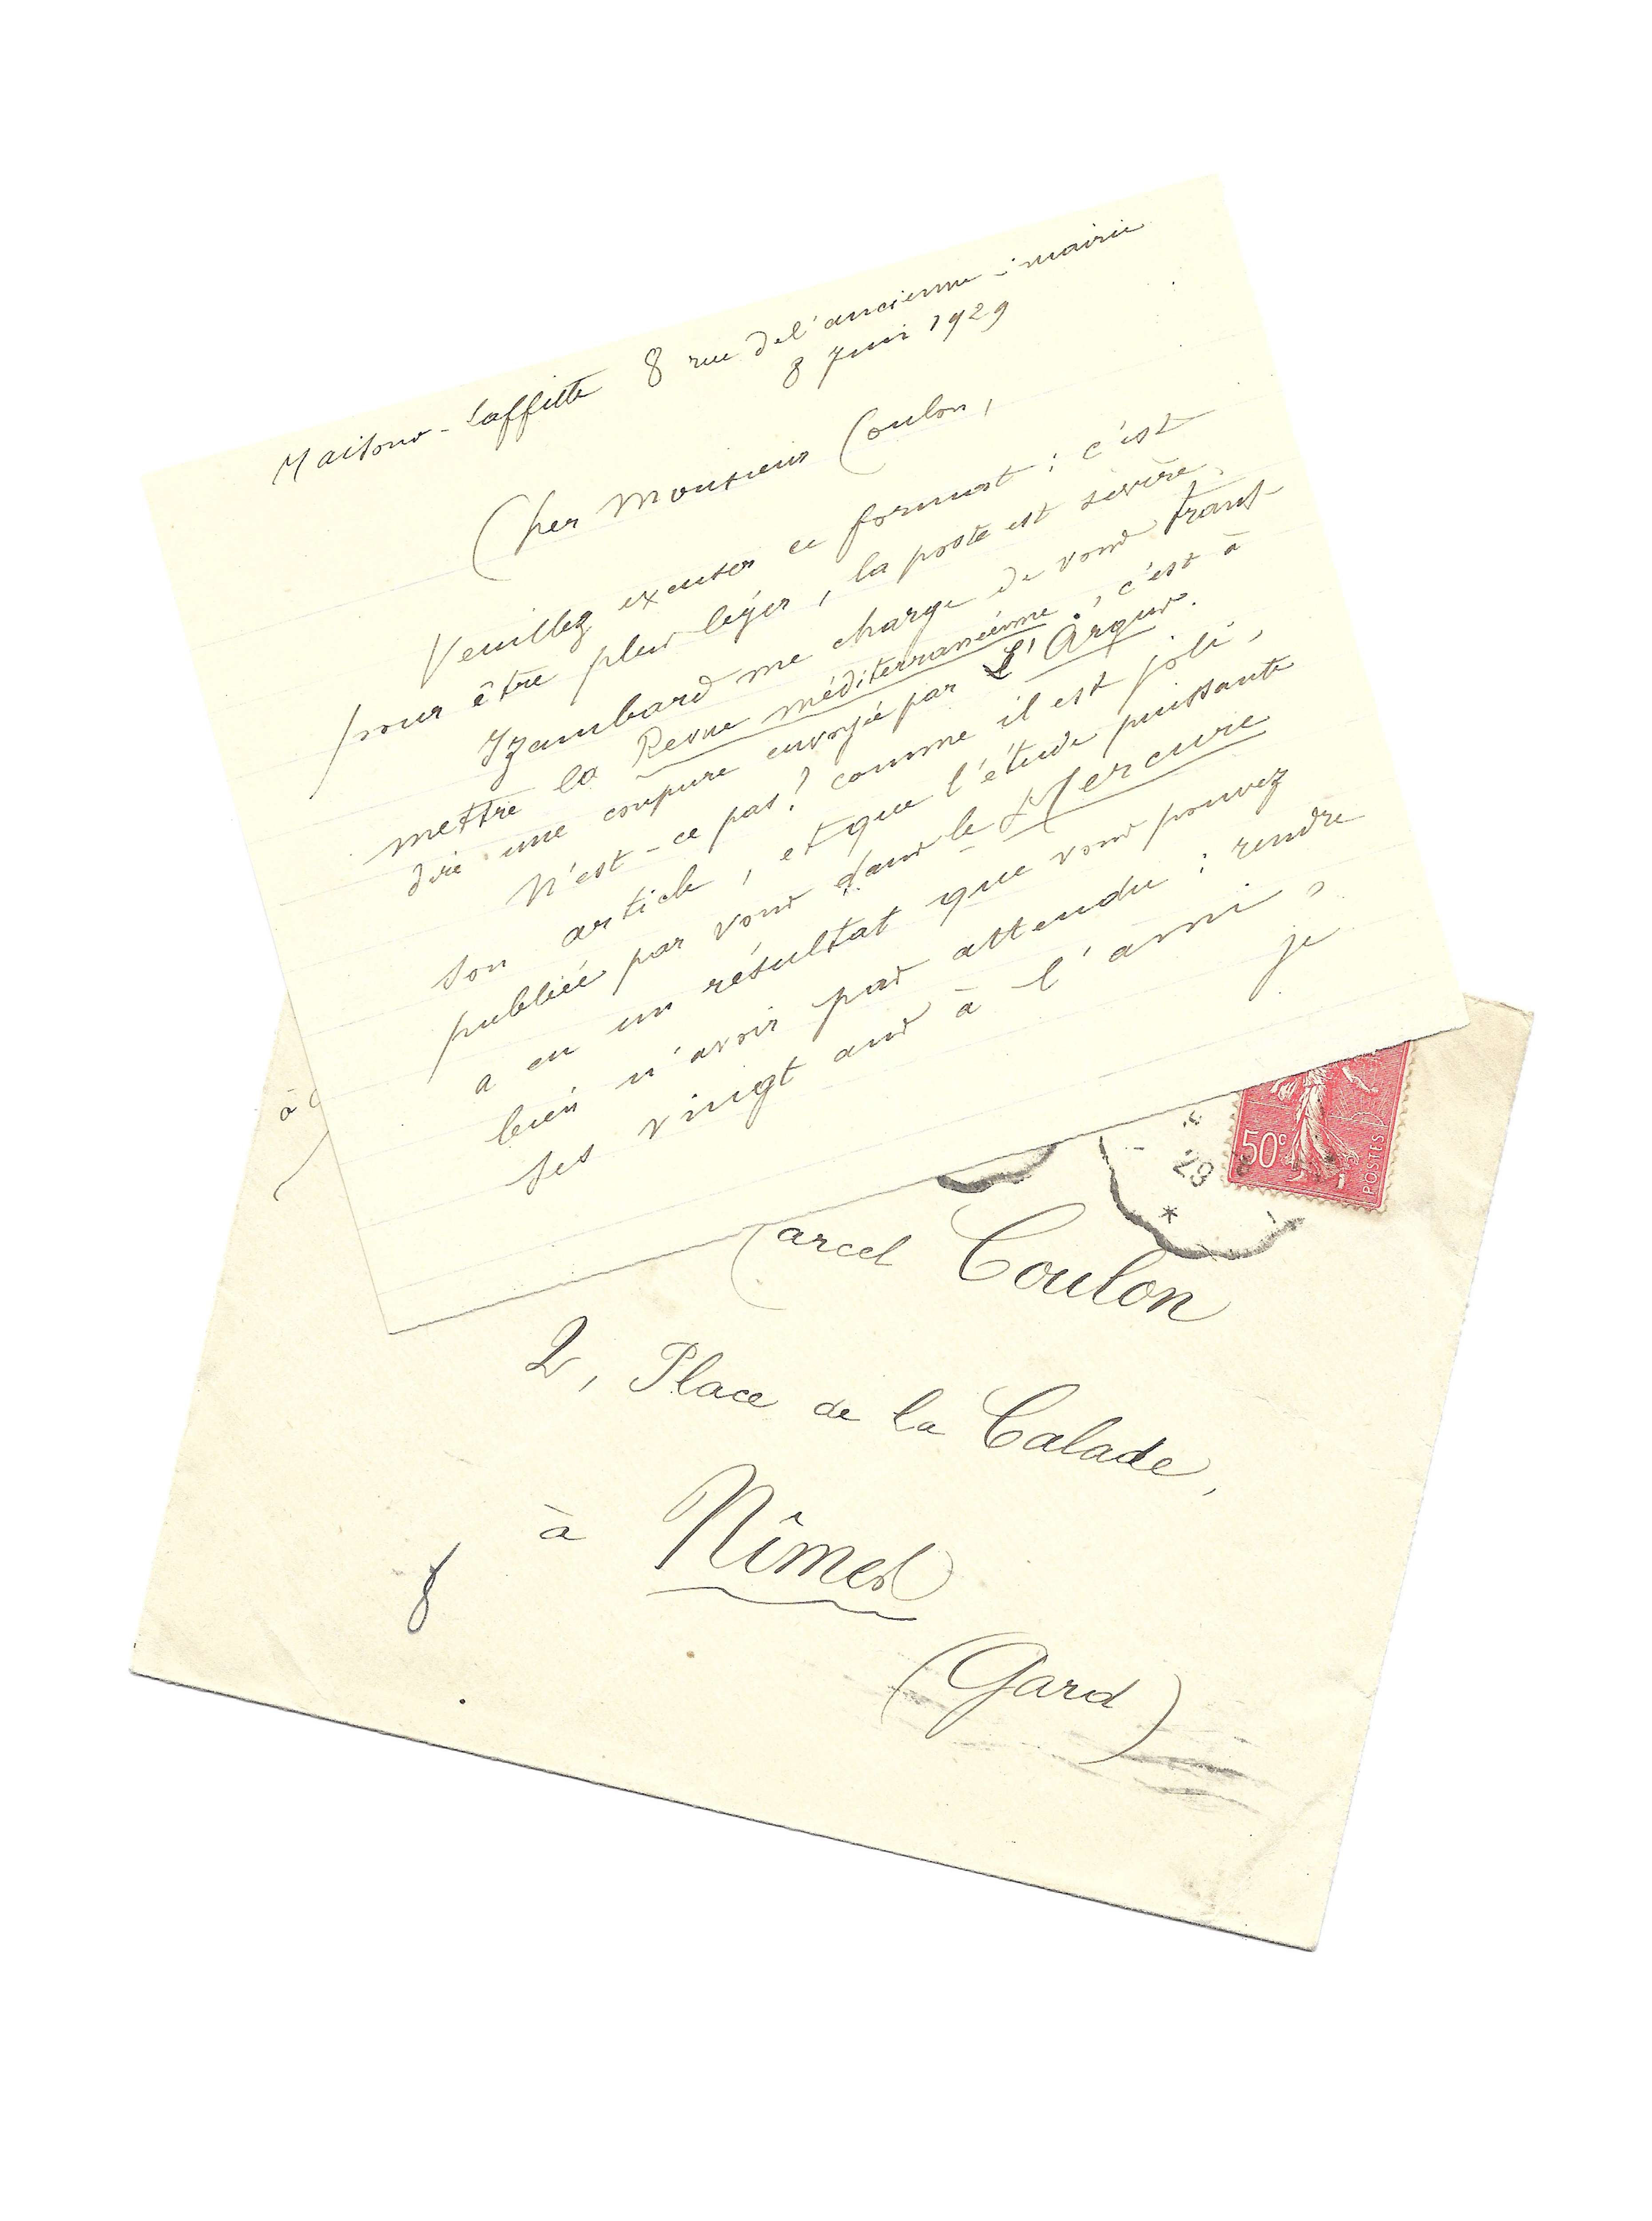 Maisons-Laffitte 8 rue de l'ancienne-mairie
8 Juin 1929
Cher Monsieur Coulon,
Veuillez excuser ce format : c'est
pour être plus léger, la poste est sévère.
Izambard me charge de vous trans-
mettre la Revue méditerranéenne, c'est à
dire une coupure envoyée par L'Argus.
N'est-ce pas ? comme il est joli,
son article, et que l'étude puissante
publiée par vous dans le Mercure
a eu un résultat que vous pouvez
bien n'avoir pas attendu : rendre
ses vingt ans à l'ami,
je
à
50c
POSTES
29
arcel Coulon
2, Place de la Calade,
à Nîmes
8
(Gard)